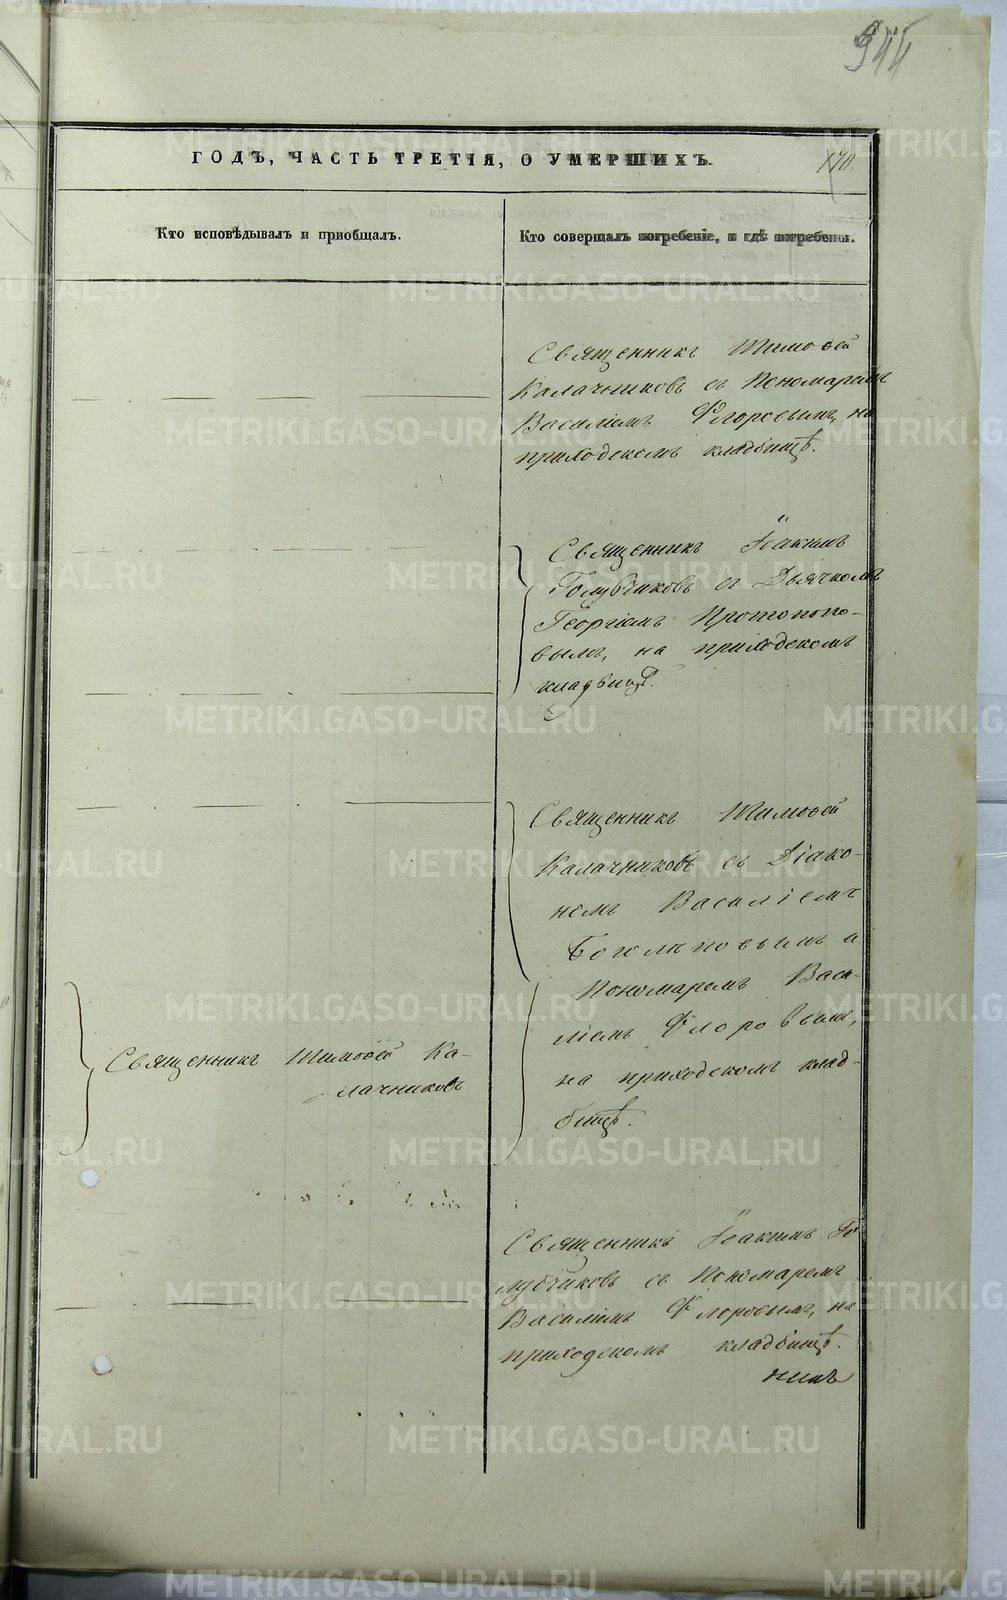 944
ГОДЪ, ЧАСТЬ ТРЕТІЯ, О УМЕРШИХЪ.
170.
Кто исповѣдывалъ и пріобщалъ.
Кто совершалъ погребеніе, и гдѣ погребены.
Священникъ Тимоѳей
Калачниковъ съ Пономаремъ
Василіемъ Флоровымъ, на
приходскомъ кладбищѣ.
Священникъ Іоакимъ
Голубчиковъ съ Дьячкомъ
Георгіемъ Протопопо-
вымъ, на приходскомъ
кладбищѣ.
Священникъ Тимоѳей
Калачниковъ съ Діако-
номъ Василіемъ
Боголюповымъ и
Пономаремъ Васи-
ліемъ Флоровымъ,
на приходскомъ клад-
бищѣ.
Священникъ Тимоѳей Ка-
лачниковъ
Священникъ Іоакимъ Го
лубчиковъ съ Пономаремъ
Василіемъ Флоровымъ, на
приходскомъ кладбищѣ.
METRIKI.GASO-URAL.RU